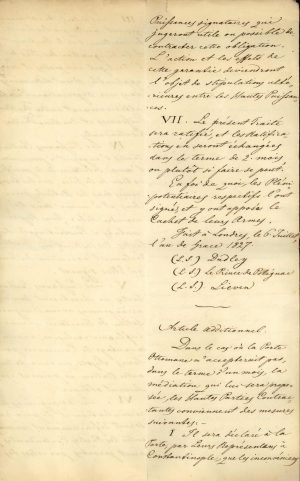 Puissances signataires qui
jugeront utile ou possible de
contracter cette obligation.
L'action et les effets de
cette garantie deviendront
l'objet de stipulations ulté-
rieures entre les Hautes Puissan-
ces.
VII. Le présent Traité
sera ratifié, et les Ratifica-
tions en seront échangées
dans le terme de 2 mois
ou plutôt si faire se peut.
En foi de quoi, les Pléni-
potentiaires respectifs l'ont
signé, et y ont apposé le
Cachet de leurs Armes.
Fait à Londres, le 6 Juillet,
l'an de Grace 1827.
(L.S.) Dudley
(L.S.) Le Prince de Polignac
(L.S.) Lieven
Article additionnel
Dans le cas où la Porte
Ottomane n'accepterait pas,
dans le terme d'un mois, la
médiation qui lui sera propo-
sée, les Hautes Parties Contrac-
tantes conviennent des mesures
suivantes.-
I Il sera déclaré à la
Porte, par Leurs Représentans à
Constantinople, que les inconvéniens